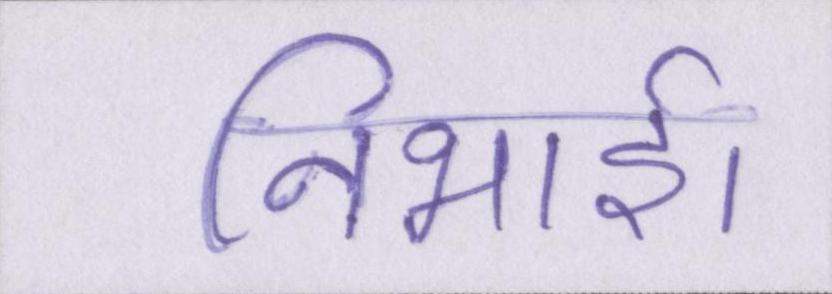 निभाई।